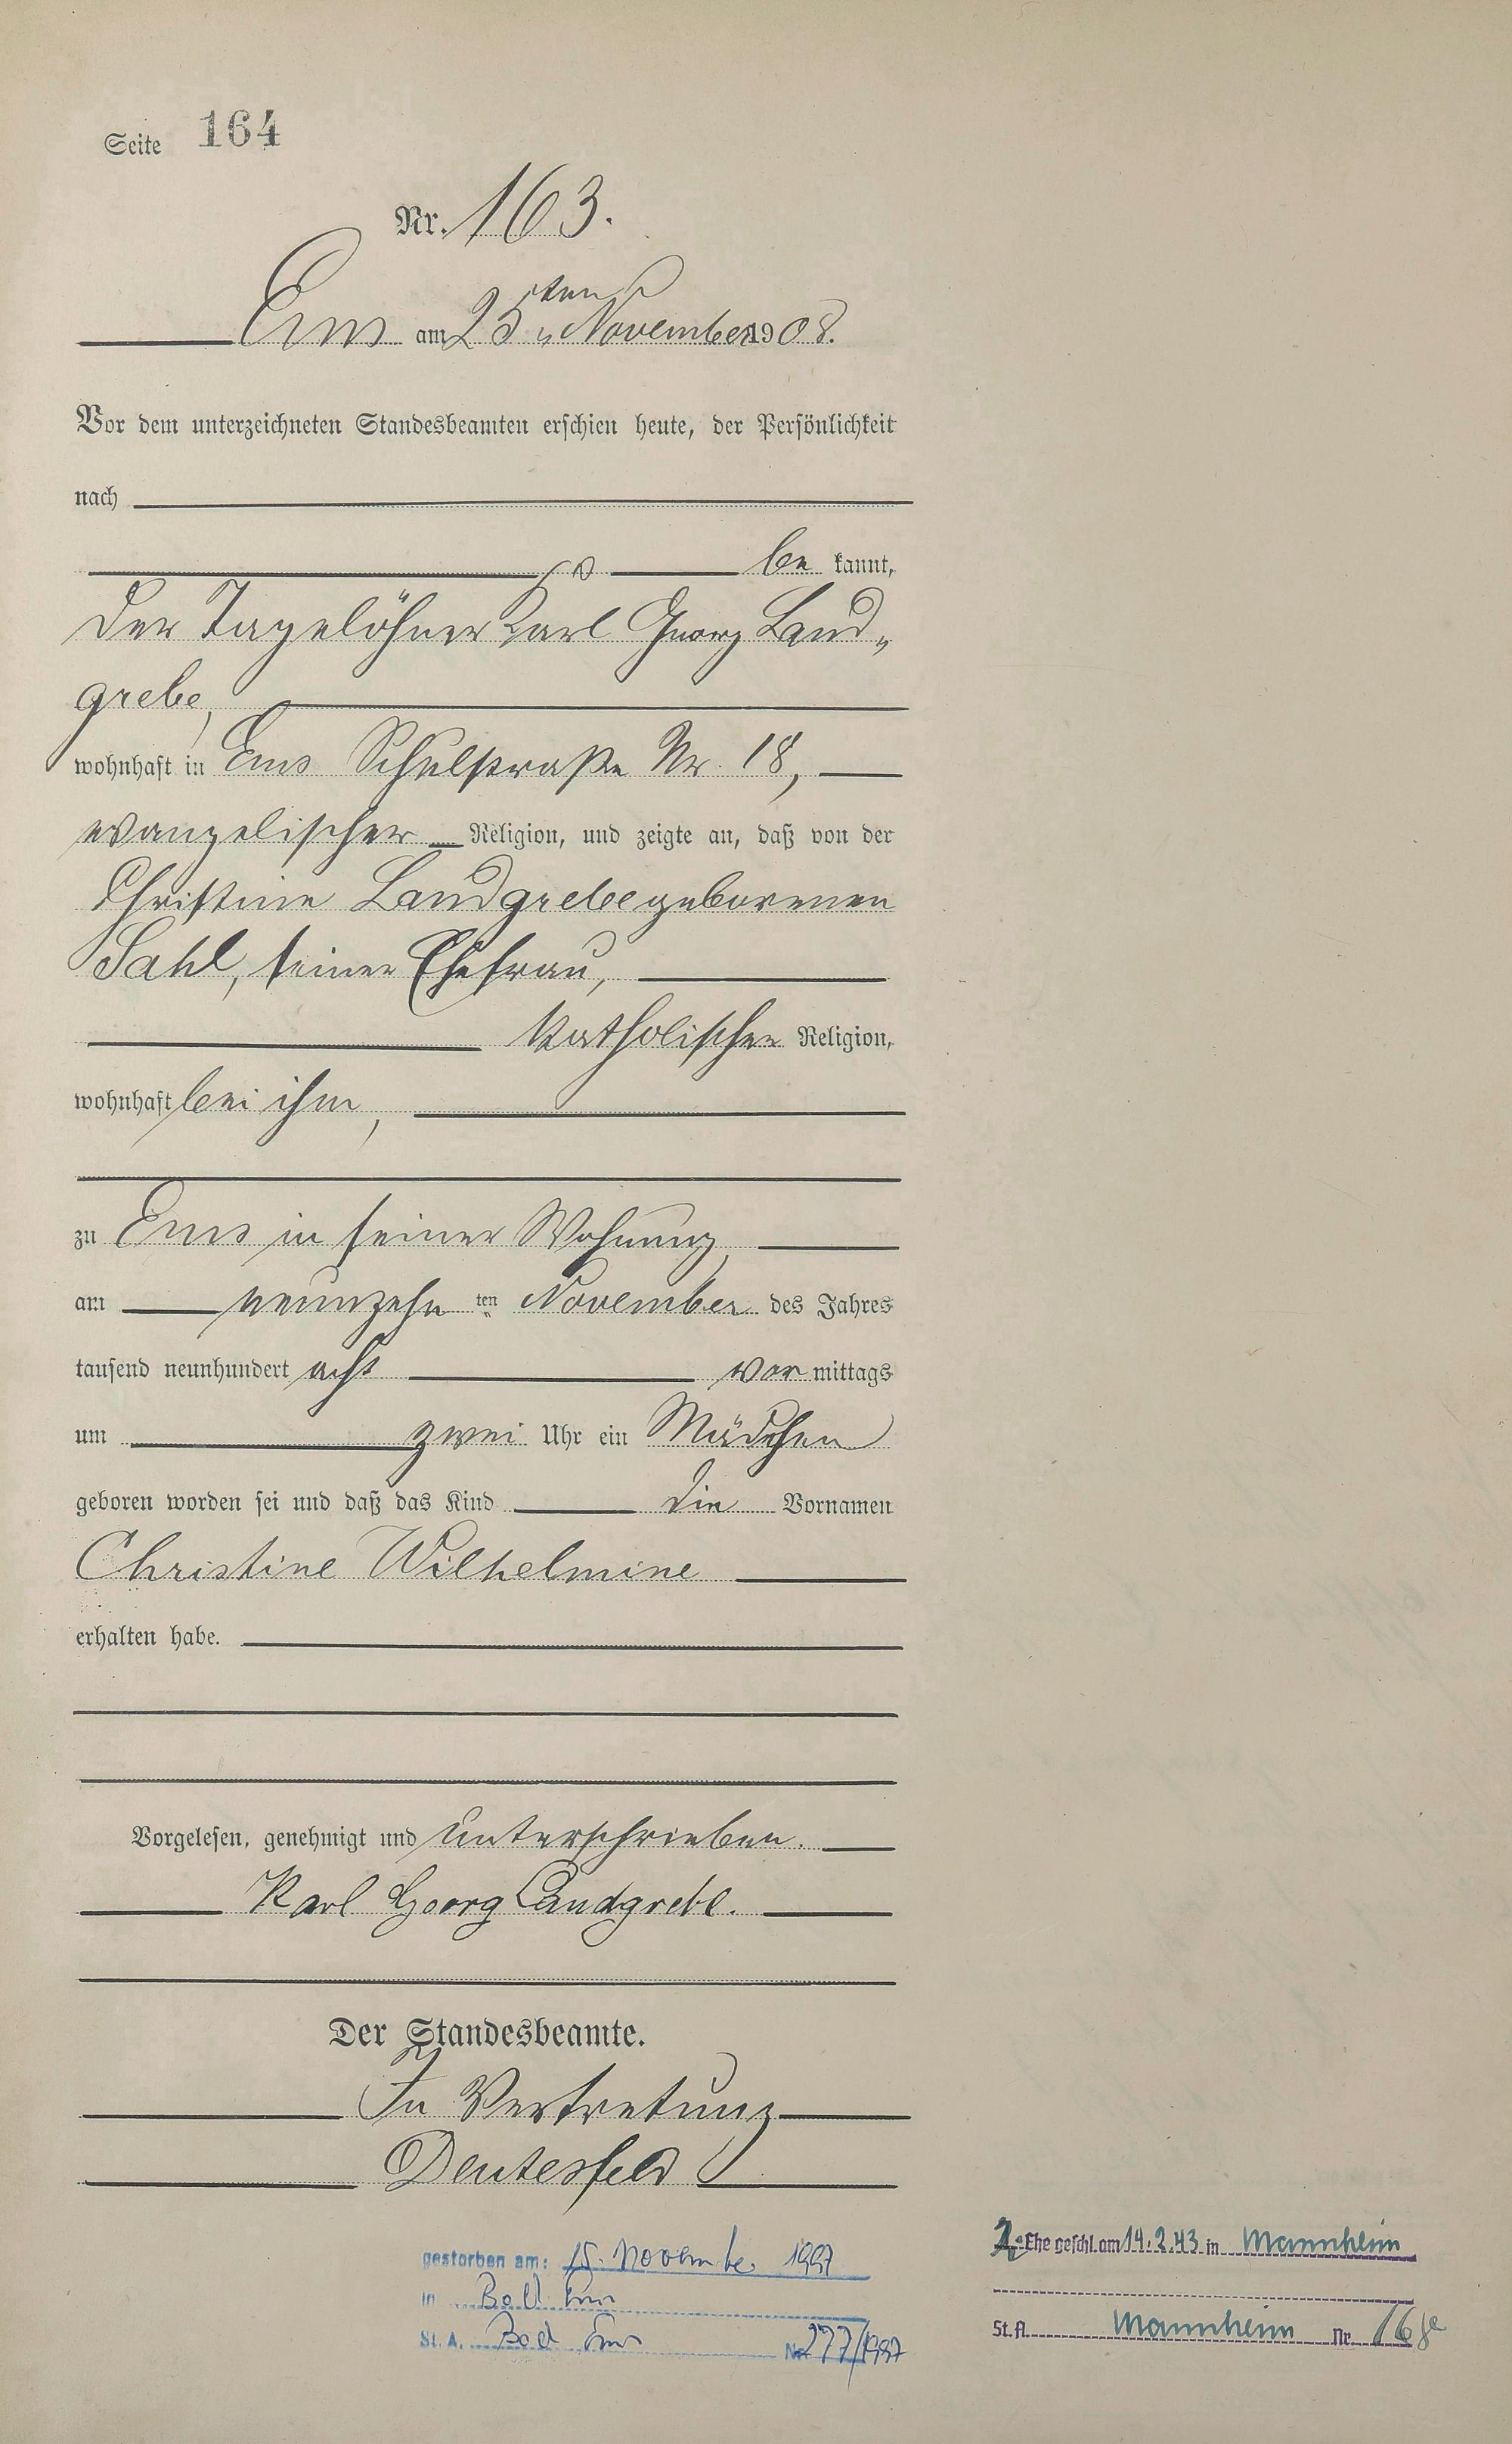 Seite 164
Nr. 163.
Ems am 25ten November 1908.
Vor dem unterzeichneten Standesbeamten erschien heute, der Persönlichkeit
nach
be kannt,
der Tagelöhner Karl Georg Land-
grebe,
wohnhaft in Ems Schulstraße Nr. 18,
evangelischer Religion, und zeigte an, daß von der
Christine Landgrebe geborenen
Sahl, seiner Ehefrau,
katholischer Religion,
wohnhaft bei ihm,
zu Ems in seiner Wohnung,
am neunzehn ten November des Jahres
tausend neunhundert acht vor mittags
um zwei Uhr ein Mädchen
geboren worden sei und daß das Kind die Vornamen
Christine Wilhelmine
erhalten habe.
Vorgelesen, genehmigt und unterschrieben.
Karl Georg Landgrebe.
Der Standesbeamte.
In Vertretung
Deutesfeld
gestorben am: 15. November 1997
in Bad Ems
St. A. Bad Ems Nr. 277/1997
2. Ehe geschl. am 14.2.43 in Mannheim
St. A. Mannheim Nr. 16